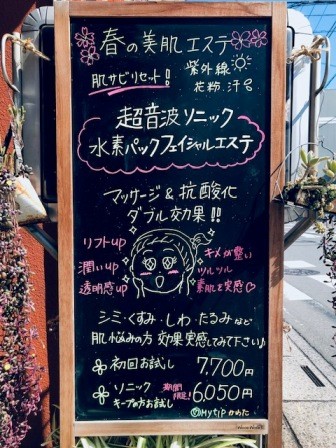 春の美肌エステ
肌サビリセット!
紫外線
花粉.汗
超音波ソニック
水素パックフェイシャルエステ
マッサージ&抗酸化
ダブル効果!!
リフトup
潤いup
透明感up
キメが整い
ツルツル
素肌を実感♡
シミ・くすみ・しわ・たるみなど
肌悩みの方 効果実感してみて下さい♪
初回お試し 7,700円
ソニック
キープの方お試し 期間限定! 6,050円